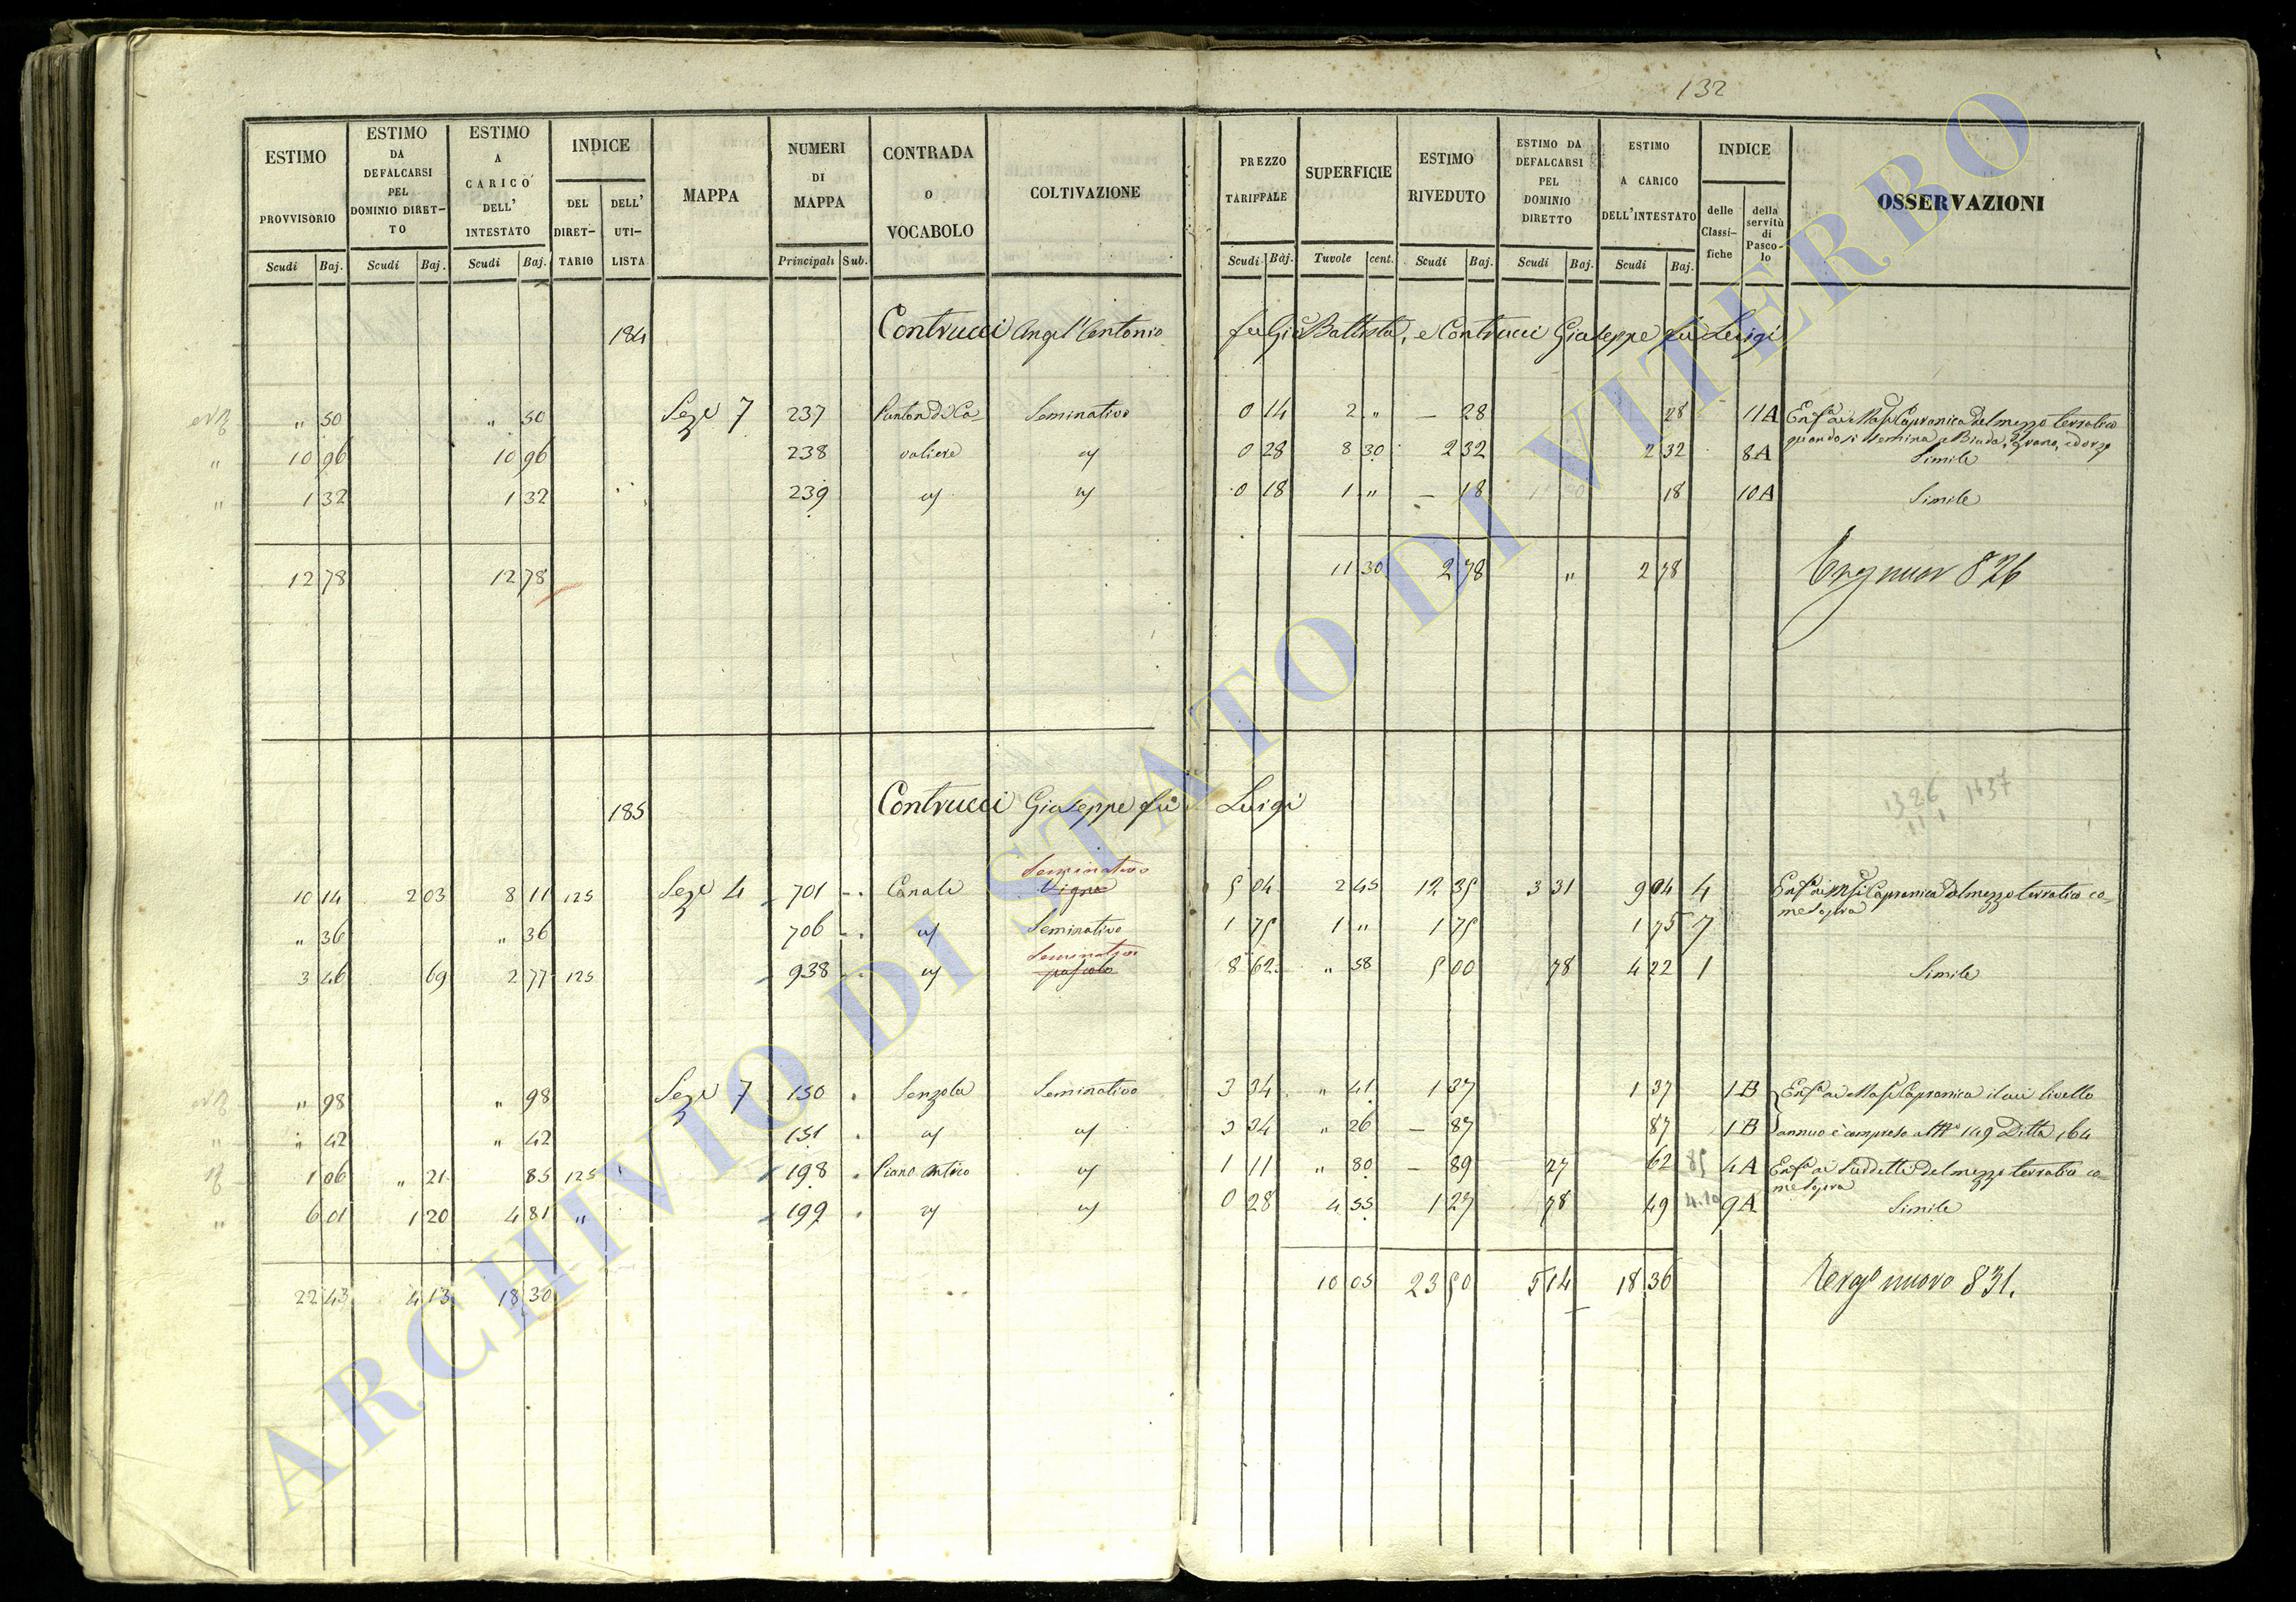 132
ESTIMO PROVVISORIO Scudi Baj.
ESTIMO DA DEFALCARSI PEL DOMINIO DIRET-TO Scudi Baj.
ESTIMO A CARICO DELL' INTESTATO Scudi Baj.
INDICE DEL DIRET-TARIO DELL' UTI-LISTA
MAPPA
NUMERI DI MAPPA Principali Sub.
CONTRADA O VOCABOLO
COLTIVAZIONE
PREZZO TARIFFALE Scudi Baj.
SUPERFICIE Tavole cent.
ESTIMO RIVEDUTO Scudi Baj.
ESTIMO DA DEFALCARSI PEL DOMINIO DIRETTO Scudi Baj.
ESTIMO A CARICO DELL'INTESTATO Scudi Baj.
INDICE delle Classi-fiche della servitù di Pasco-lo
OSSERVAZIONI
184 Contrucci Angel'Antonio fu Gio Battista, e Contrucci Giuseppe fu Luigi
" 50 " 50 Seze 7 237 Punton di Ca- Seminativo 0 14 2 " — 28 28 11A Enfa ai Capranica del mezzo terratico
quando si semina a Biada, grano, ed orzo
10 96 10 96 238 valiere 0 28 8 30 2 32 2 32 8A Simile
1 32 1 32 239 0 18 1 " — 18 18 10A Simile
12 78 12 78 11 30 2 78 " 2 78 nuov 826
185 Contrucci Giuseppe fu Luigi
1326 1637
Seminativo
10 14 2 03 8 11 125 Seze 4 701 Canale Vigna 5 04 2 45 12 35 3 31 9 04 4 Enfa ai Capranica del mezzo terratico co-
me sopra
" 36 " 36 706 Seminativo 1 75 1 " 1 75 1 75 7
Seminativo
3 46 69 2 77 125 938 pascolo 8 62 " 58 5 00 78 4 22 1 Simile
" 98 " 98 Seze 7 150 Senzola Seminativo 3 34 " 41 1 37 1 37 1B Enfa ai Capranica il cui livello
" 42 " 42 151 3 34 " 26 — 87 87 1B annuo è compreso al No 149 Ditta 164
1 06 " 21 85 125 198 Piano Antico 1 11 " 80 — 89 27 62 85 4A Enfa ai Suddetti del mezzo terratico co-
me sopra
6 01 1 20 4 81 " 199 0 28 4 55 1 27 78 49 4.10 9A Simile
22 43 4 13 18 30 10 05 23 50 5 14 18 36 nuovo 831.
ARCHIVIO DI STATO DI VITERBO